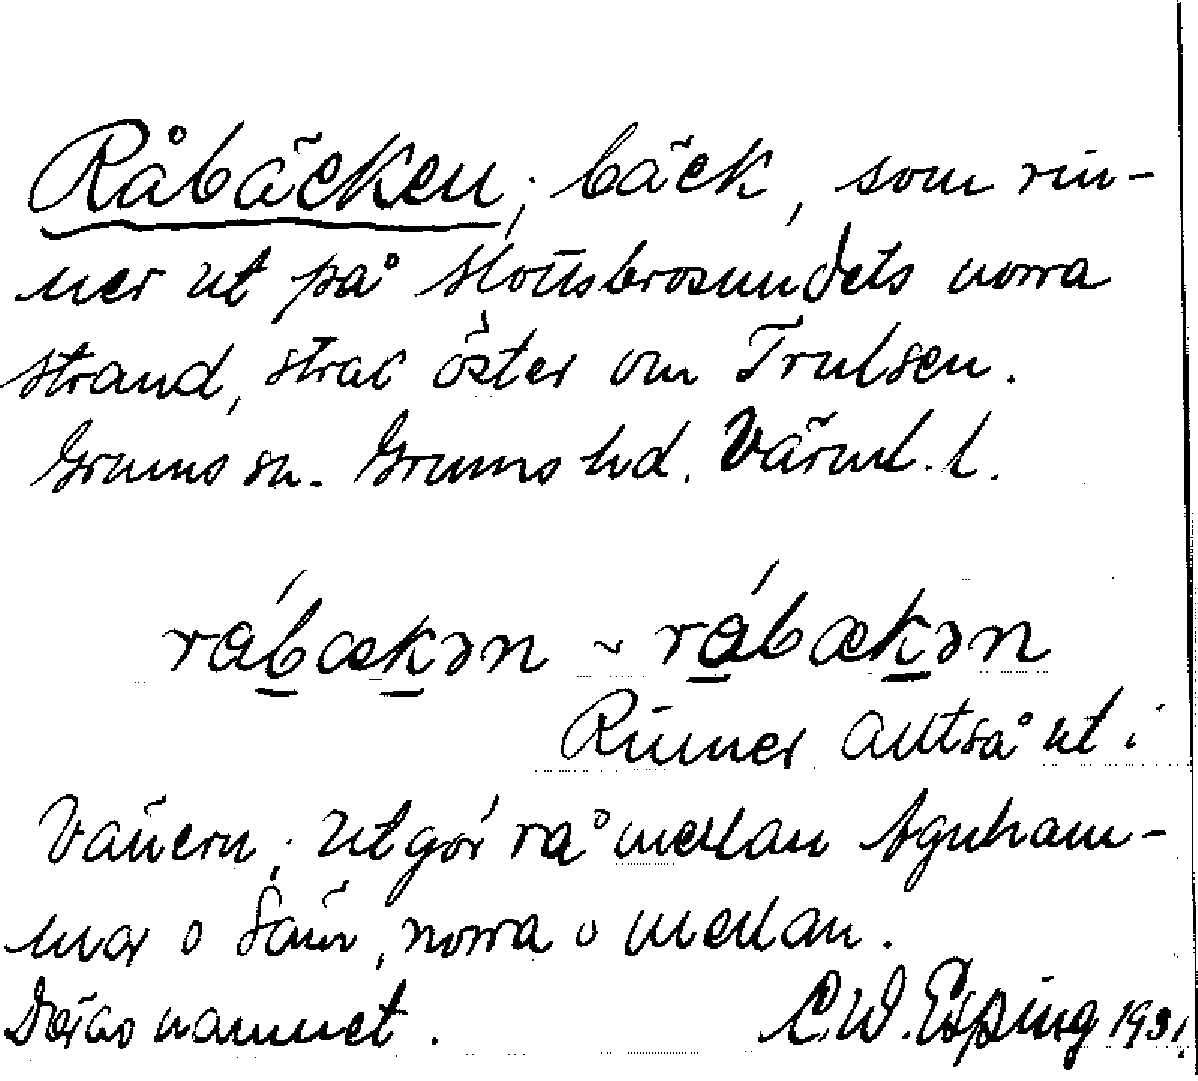 Råbäcken; bäck, som rin-
ner ut på Slottsbrosundets norra
strand, strax öster om Trulsen.
Grums sn. Grums hd. Värml. l.
rábækən ~ rábækən
Rinner alltså ut i
Vänern; utgör rå mellan Agnham-
mar o Säm, norra o mellan.
Därav namnet. C.W. Esping 1931.